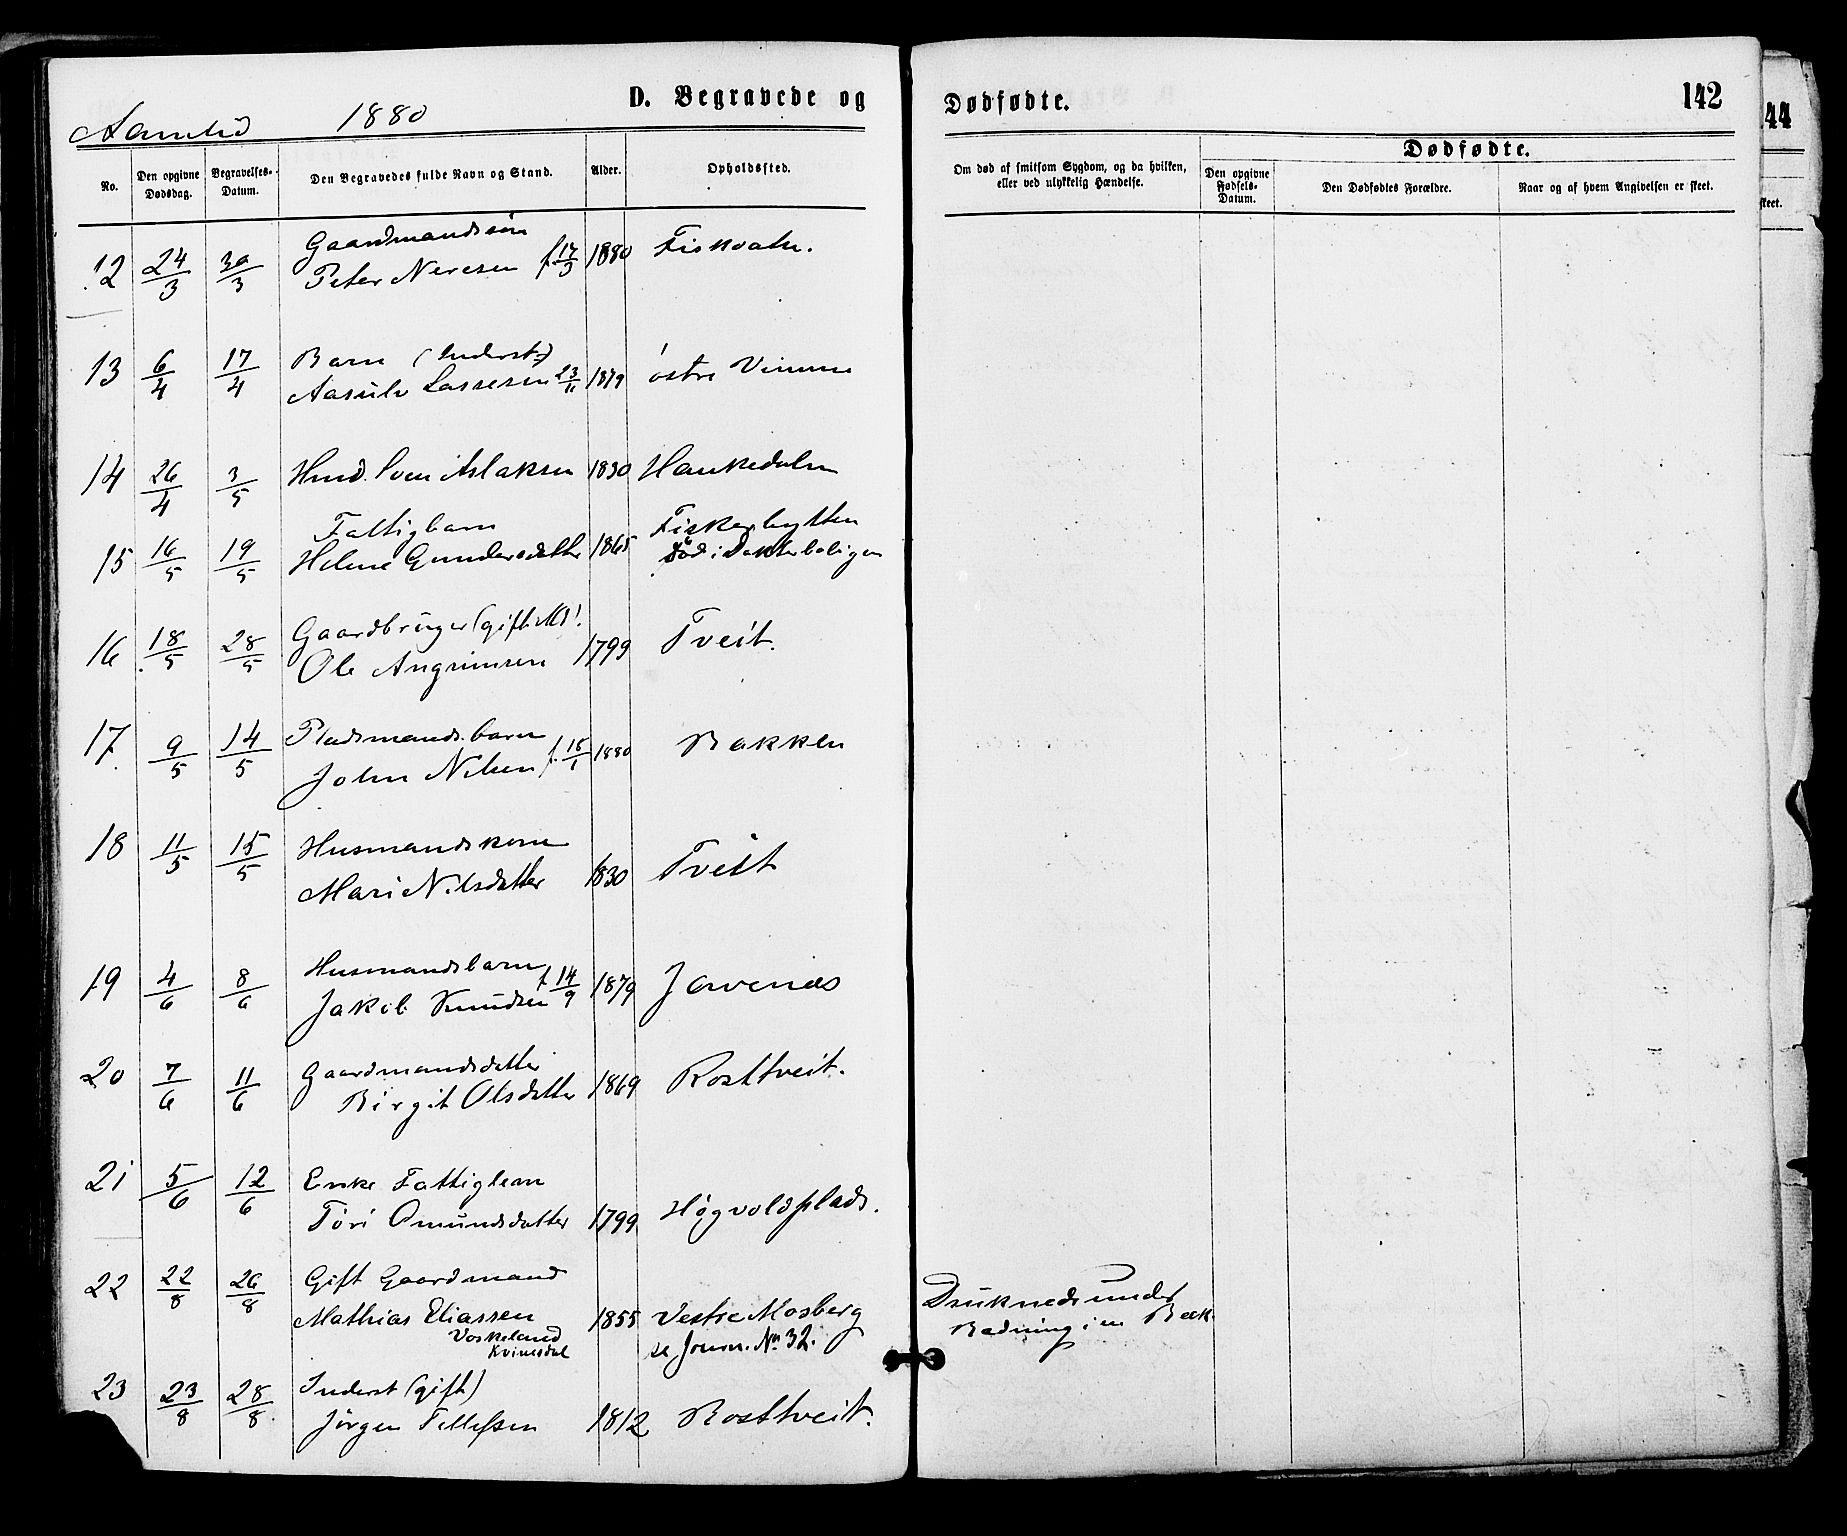 Aamlid 1880
D. Begravede og Dødfødte. 142
144
No. Den opgivne Dødsdag. Begravelses-Datum. Den Begravedes fulde Navn og Stand. Alder. Opholdssted. Om død af smitsom Sygdom, og da hvilken, eller ved ulykkelig Hændelse.
Dødfødte.
Den opgivne Fødsels-Datum. Den Dødfødtes Forældre. Naar og af hvem Angivelsen er skeet.
skeet.
12 24/3 30/3 Gaardmandssøn
Peter Neresen f. 17/3 1880 Fiskvatn.
13 6/4 17/4 Barn (Inderst:)
Aasulv Lassesen 23/11 1879 østre Vimme
14 26/4 3/5 Husd. Sven Aslaksen 1830 Haukedalen
15 16/5 19/5 Fattigbarn
Helene Gundersdatter 1865 Fiskerhytten
død i Dokterboligen
16 18/5 28/5 Gaardbruger (gift)
Ole Angrimsen 1799 Tveit.
17 9/5 14/5 Pladsmandsbarn
John Nilsen f. 18/1 1880 Bakken
18 11/5 15/5 Husmandskone
Mari Nilsdatter 1830 Tveit
19 4/6 8/6 Husmandsbarn
Jakob Knudsen f 14/9 1879 Jovenæs
20 7/6 11/6 Gaardmandsdatter
Birgit Olsdatter 1869 Rosttveit.
21 5/6 12/6 Enke Fattiglem
Töri Omundsdatter 1799 Høgvoldplads.
22 22/8 26/8 Gift Gaardmand
Mathias Eliassen 1855 Vestre Mosberg Druknede under
Voskeland se Journ. No 32. Badning i en Bæk.
Kvinesdal
23 23/8 28/8 Inderst (gift)
Jörgen Tellefsen 1812 Rosttveit.